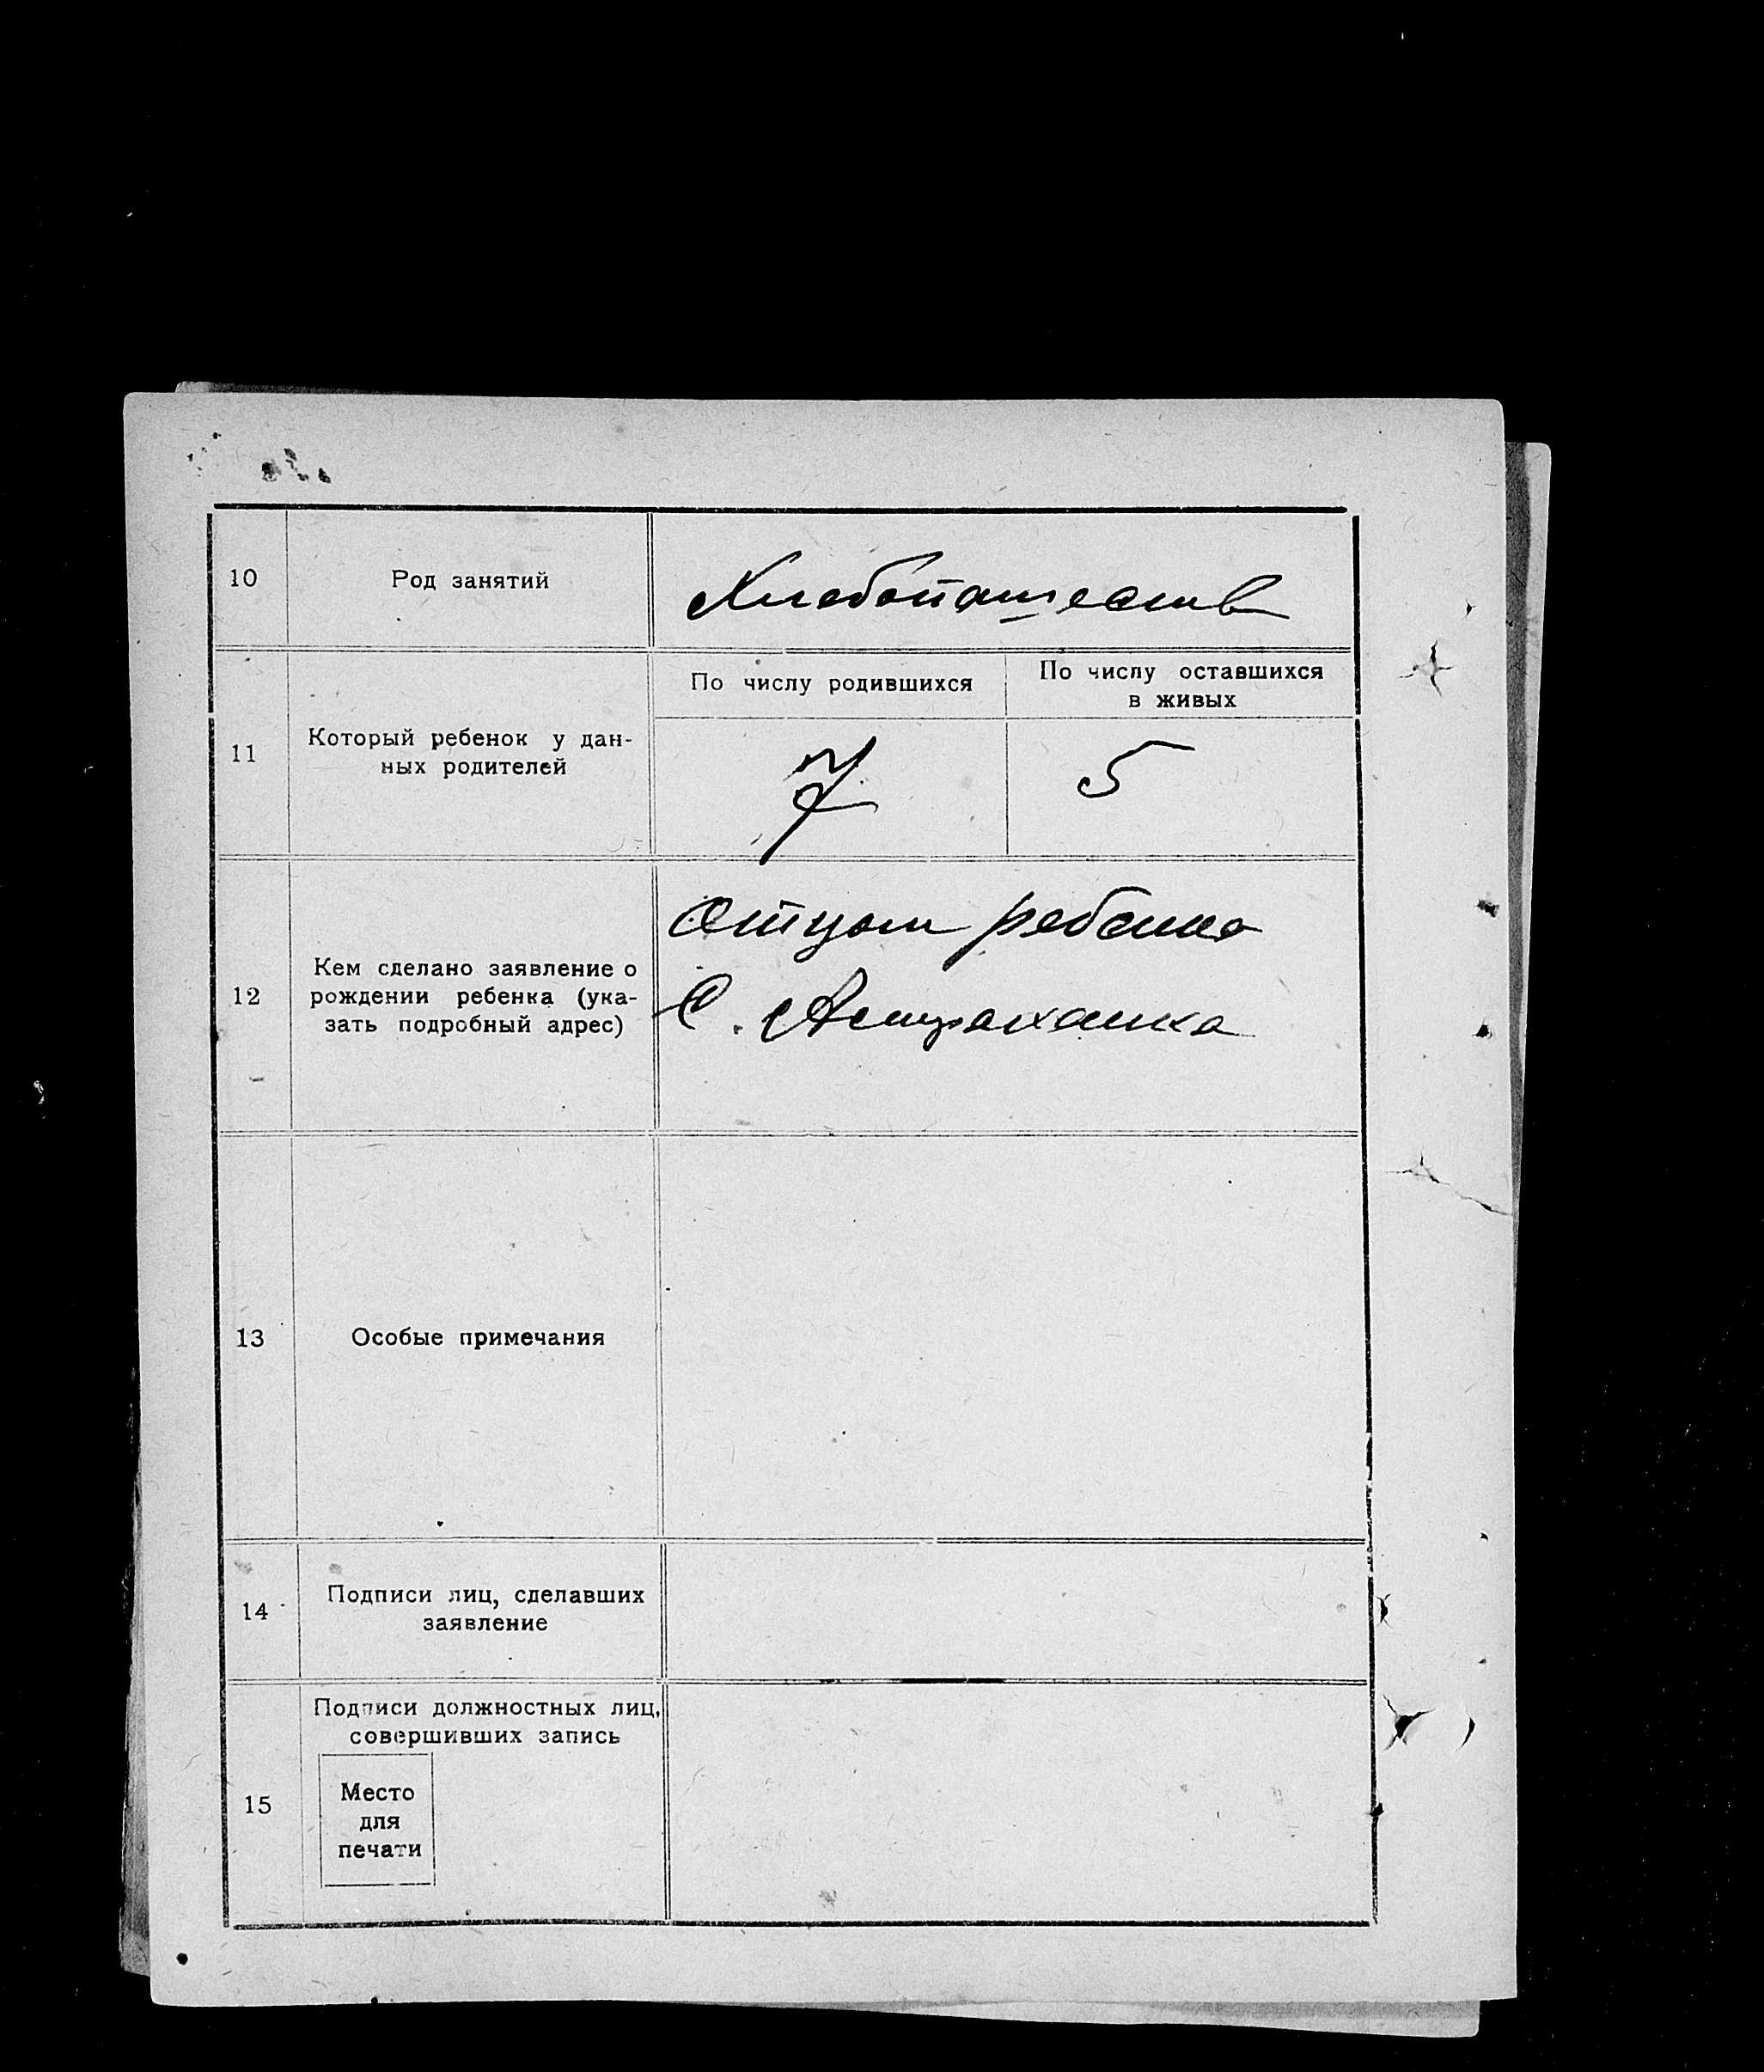 10 Род занятий Хлебопашеств
По числу родившихся По числу оставшихся
в живых
11 Который ребенок у дан-
ных родителей
7 5
Отцом ребенка
С. Астраханка
12 Кем сделано заявление о
рождении ребенка (ука-
зать подробный адрес)
13 Особые примечания
14 Подписи лиц, сделавших
заявление
15 Подписи должностных лиц,
совершивших запись
Место
для
печати